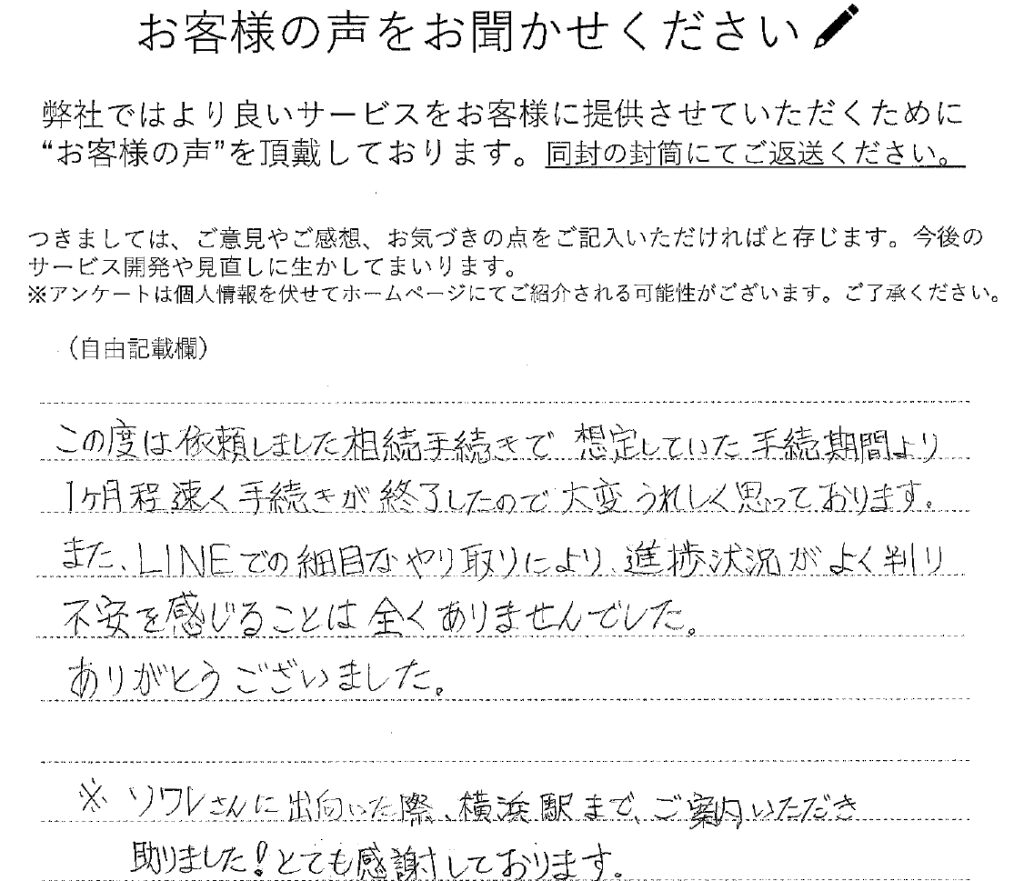 お客様の声をお聞かせください
弊社ではより良いサービスをお客様に提供させていただくために
“お客様の声”を頂戴しております。同封の封筒にてご返送ください。
つきましては、ご意見やご感想、お気づきの点をご記入いただければと存じます。今後の
サービス開発や見直しに生かしてまいります。
※アンケートは個人情報を伏せてホームページにてご紹介される可能性がございます。ご了承ください。
（自由記載欄）
この度は依頼しました相続手続きで 想定していた手続期間より
1ヶ月程速く手続きが終了したので大変うれしく思っております。
また、LINEでの細目なやり取りにより、進捗状況がよく判り
不安を感じることは全くありませんでした。
ありがとうございました。
※ ソワレさんに出向いた際、横浜駅まで、ご案内いただき
助りました！とても感謝しております。